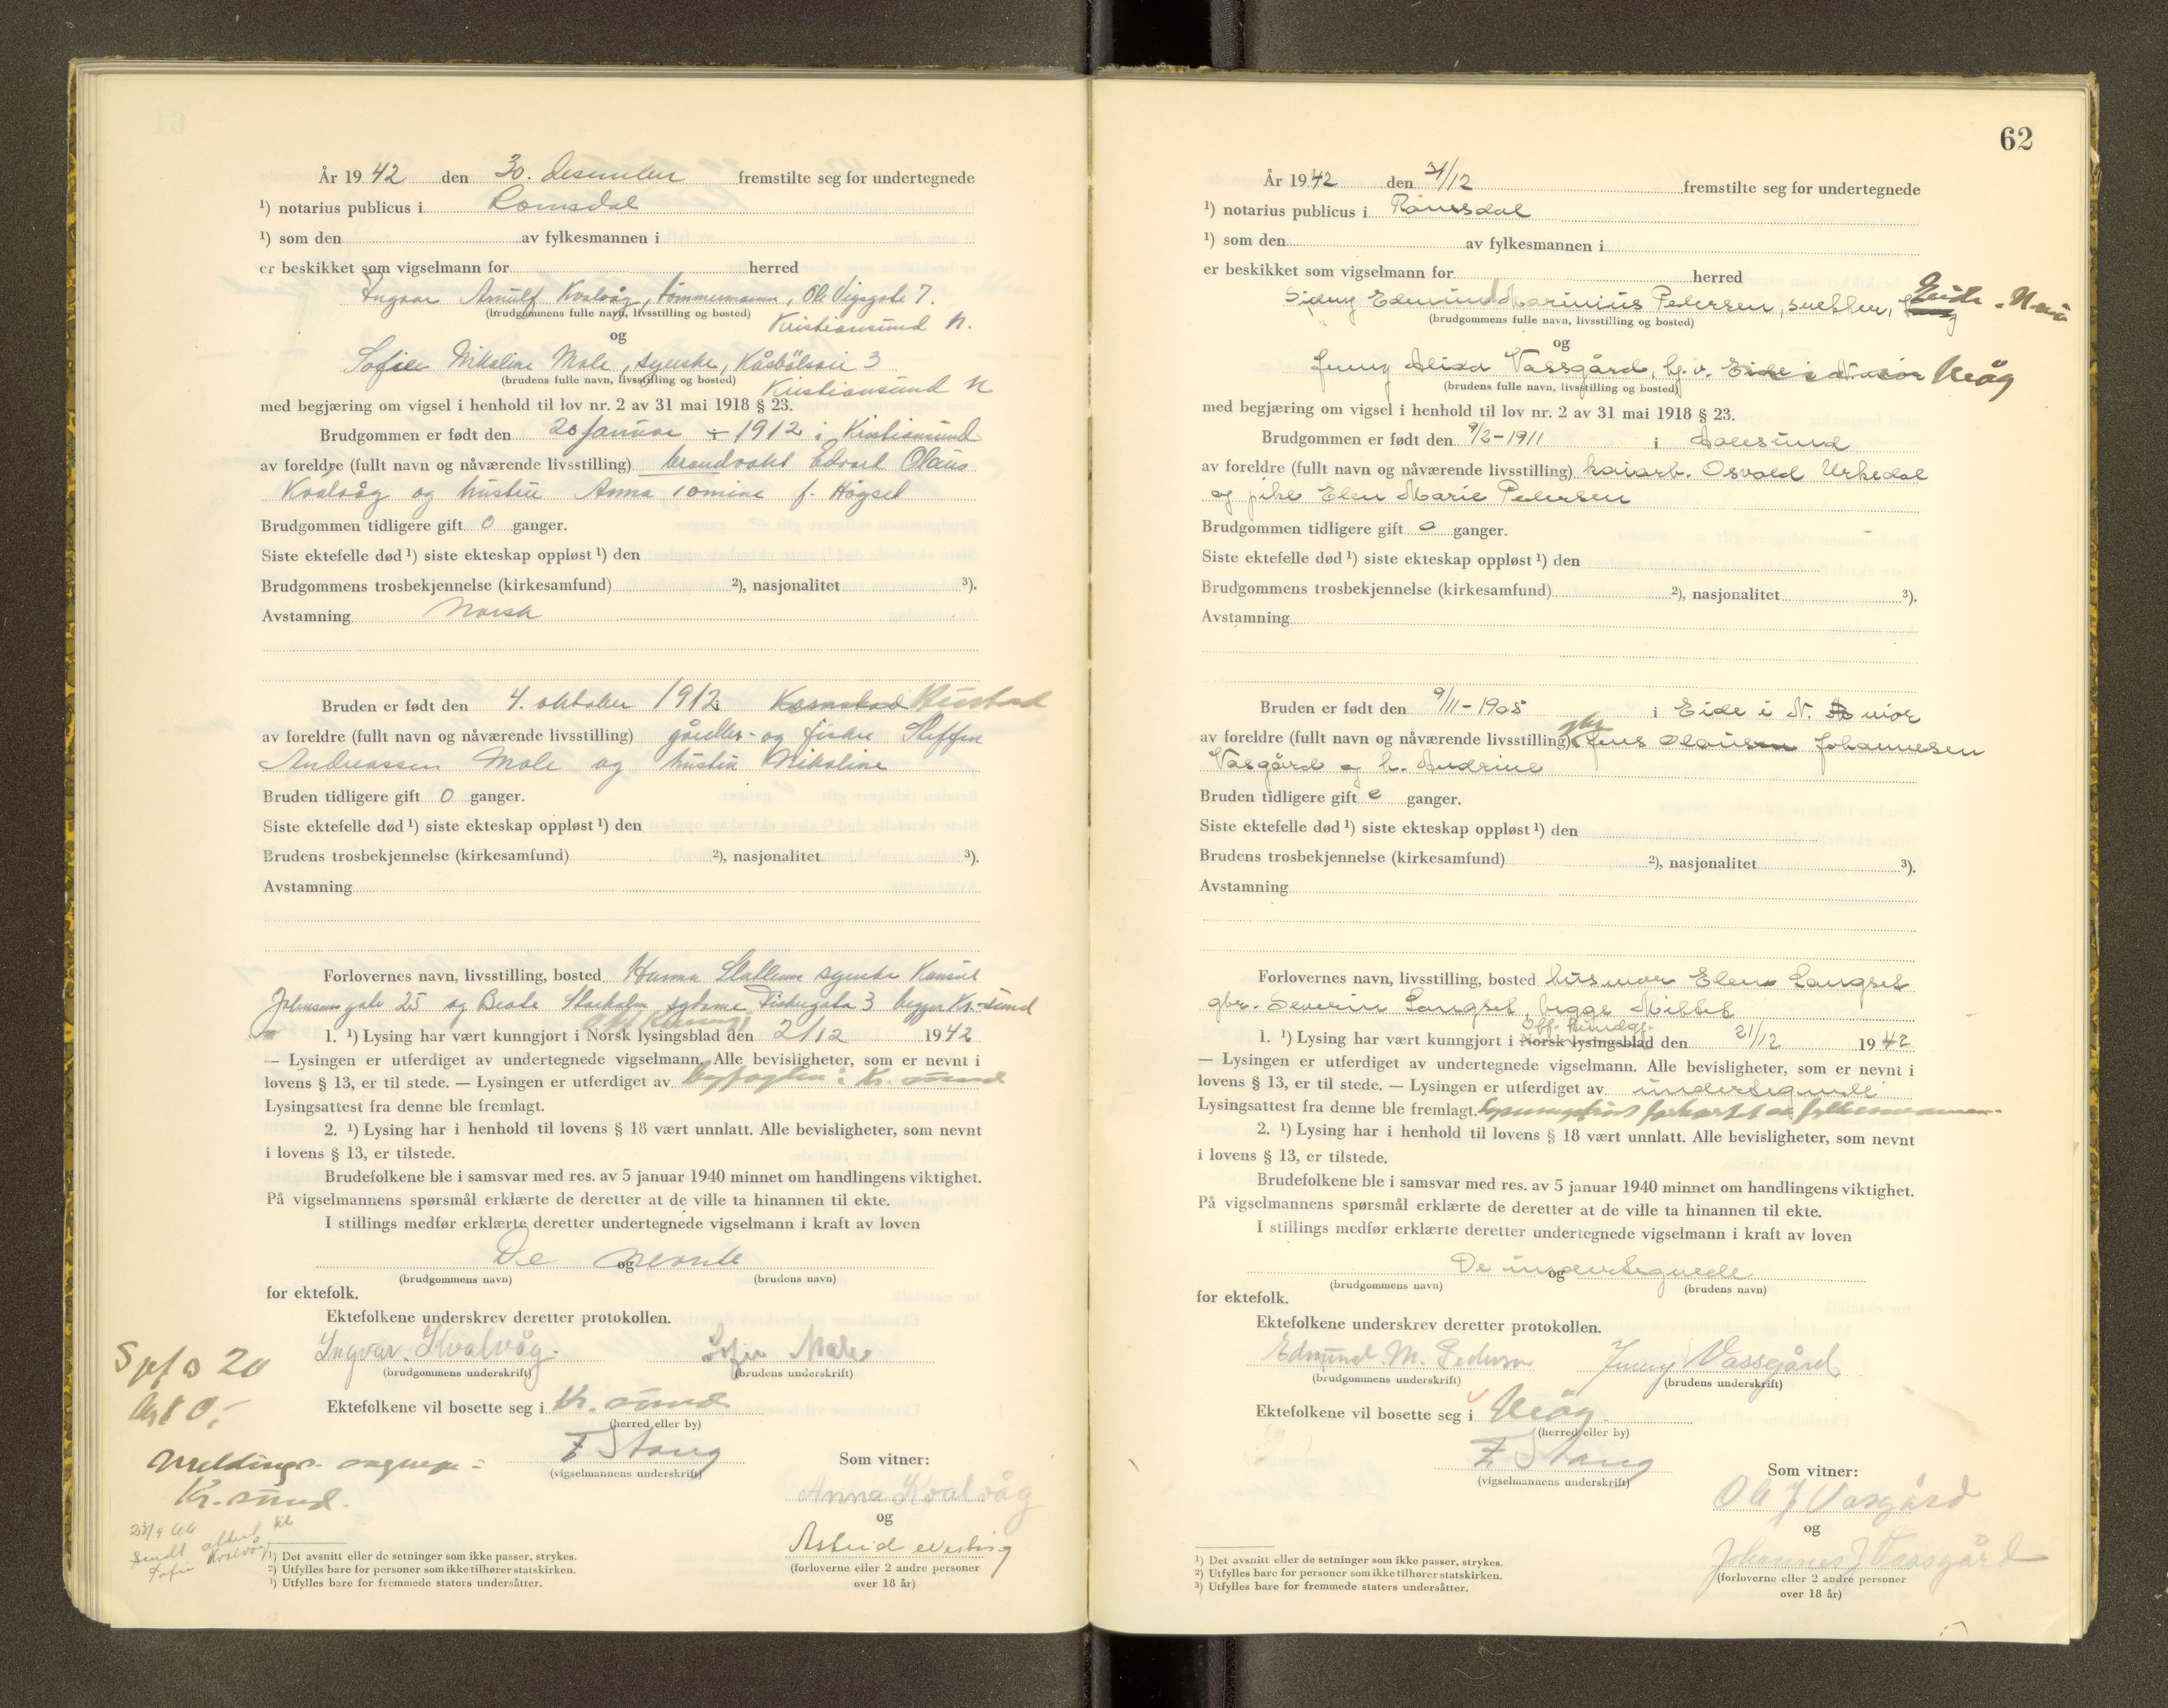 År 1942 den 30. desember fremstilte seg for undertegnede
¹) notarius publicus i Romsdal
¹) som den av fylkesmannen i
er beskikket som vigselmann for herred
Ingvar Arnulf Kvalvåg, tømmermann, Ole Vigsgate 7.
(brudgommens fulle navn, livsstilling og bosted) Kristiansund N.
og
Sofie Nikoline Male, syerske,
(brudens fulle navn, livsstilling og bosted) Kristiansund N
med begjæring om vigsel i henhold til lov nr. 2 av 31 mai 1918 § 23.
Brudgommen er født den 20 januar 1912 i Kristiansund
av foreldre (fullt navn og nåværende livsstilling) brandvakt Edvart Olaus
Kvalvåg og hustru Anna f. Högset
Brudgommen tidligere gift 0 ganger.
Siste ektefelle død ¹) siste ekteskap oppløst ¹) den
Brudgommens trosbekjennelse (kirkesamfund) ²), nasjonalitet ³).
Avstamning Norsk
Bruden er født den 4. oktober 1912 i Bustad
av foreldre (fullt navn og nåværende livsstilling) gårdbr- og fisker Steffen
Andreassen Male og hustru Nikoline
Bruden tidligere gift 0 ganger.
Siste ektefelle død ¹) siste ekteskap oppløst ¹) den
Brudens trosbekjennelse (kirkesamfund) ²), nasjonalitet ³).
Avstamning
Forlovernes navn, livsstilling, bosted Hanna syerske Konsul
Johnsens gate 25 og Beate Storholm Fiskergata 3 begge Kr.sund
1. ¹) Lysing har vært kunngjort i Norsk lysingsblad den 2/12 1942
— Lysingen er utferdiget av undertegnede vigselmann. Alle bevisligheter, som er nevnt i
lovens § 13, er til stede. — Lysingen er utferdiget av byfogden i Kr. sund
Lysingsattest fra denne ble fremlagt.
2. ¹) Lysing har i henhold til lovens § 18 vært unnlatt. Alle bevisligheter, som nevnt
i lovens § 13, er tilstede.
Brudefolkene ble i samsvar med res. av 5 januar 1940 minnet om handlingens viktighet.
På vigselmannens spørsmål erklærte de deretter at de ville ta hinannen til ekte.
I stillings medfør erklærte deretter undertegnede vigselmann i kraft av loven
De og nevnte
(brudgommens navn) (brudens navn)
for ektefolk.
Ektefolkene underskrev deretter protokollen.
Ingvar Kvalvåg. Sofie Male
(brudgommens underskrift) (brudens underskrift)
Ektefolkene vil bosette seg i Kr. sund
(herred eller by)
F Stang
(vigselmannens underskrift)
Som vitner:
Anna Kvalvåg
og
Astrid
(forloverne eller 2 andre personer
over 18 år)
20
Kr. sund.
Sendt attest til
Sofie Kvalvåg
¹) Det avsnitt eller de setninger som ikke passer, strykes.
²) Utfylles bare for personer som ikke tilhører statskirken.
³) Utfylles bare for fremmede staters undersåtter.
62
År 1942 den 31/12 fremstilte seg for undertegnede
¹) notarius publicus i Romsdal
¹) som den av fylkesmannen i
er beskikket som vigselmann for herred
Sidny Edmund Marinius Pedersen, snekker, Eide i N.mør
(brudgommens fulle navn, livsstilling og bosted)
og
Jenny Alida Vassgård, hj.v. Eide i Nord Mør Meåg
(brudens fulle navn, livsstilling og bosted)
med begjæring om vigsel i henhold til lov nr. 2 av 31 mai 1918 § 23.
Brudgommen er født den 9/2-1911 i Ålesund
av foreldre (fullt navn og nåværende livsstilling) kaiarb. Osvald Urkedal
og pike Elen Marie Pedersen
Brudgommen tidligere gift 0 ganger.
Siste ektefelle død ¹) siste ekteskap oppløst ¹) den
Brudgommens trosbekjennelse (kirkesamfund) ²), nasjonalitet ³).
Avstamning
Bruden er født den 9/11-1905 i Eide i N. mör
av foreldre (fullt navn og nåværende livsstilling) gbr Jens Olausen Johannesen
Vasgård og h. Andrine
Bruden tidligere gift 0 ganger.
Siste ektefelle død ¹) siste ekteskap oppløst ¹) den
Brudens trosbekjennelse (kirkesamfund) ²), nasjonalitet ³).
Avstamning
Forlovernes navn, livsstilling, bosted husmor Elen Langset
gbr. Severin Langset, begge Mittet
Off. kundgj.
1. ¹) Lysing har vært kunngjort i Norsk lysingsblad den 21/12 1942
— Lysingen er utferdiget av undertegnede vigselmann. Alle bevisligheter, som er nevnt i
lovens § 13, er til stede. — Lysingen er utferdiget av undertegnede
Lysingsattest fra denne ble fremlagt. Lysningsfrist forkortet av fylkesmannen
2. ¹) Lysing har i henhold til lovens § 18 vært unnlatt. Alle bevisligheter, som nevnt
i lovens § 13, er tilstede.
Brudefolkene ble i samsvar med res. av 5 januar 1940 minnet om handlingens viktighet.
På vigselmannens spørsmål erklærte de deretter at de ville ta hinannen til ekte.
I stillings medfør erklærte deretter undertegnede vigselmann i kraft av loven
De undertegnede
og
(brudgommens navn) (brudens navn)
for ektefolk.
Ektefolkene underskrev deretter protokollen.
Edmund. M. Pedersen Jenny Vassgård
(brudgommens underskrift) (brudens underskrift)
Ektefolkene vil bosette seg i Meåg.
(herred eller by)
F Stang
(vigselmannens underskrift)
Som vitner:
Ole J Vasgård
og
Johannes J Vassgård
(forloverne eller 2 andre personer
over 18 år)
¹) Det avsnitt eller de setninger som ikke passer, strykes.
²) Utfylles bare for personer som ikke tilhører statskirken.
³) Utfylles bare for fremmede staters undersåtter.